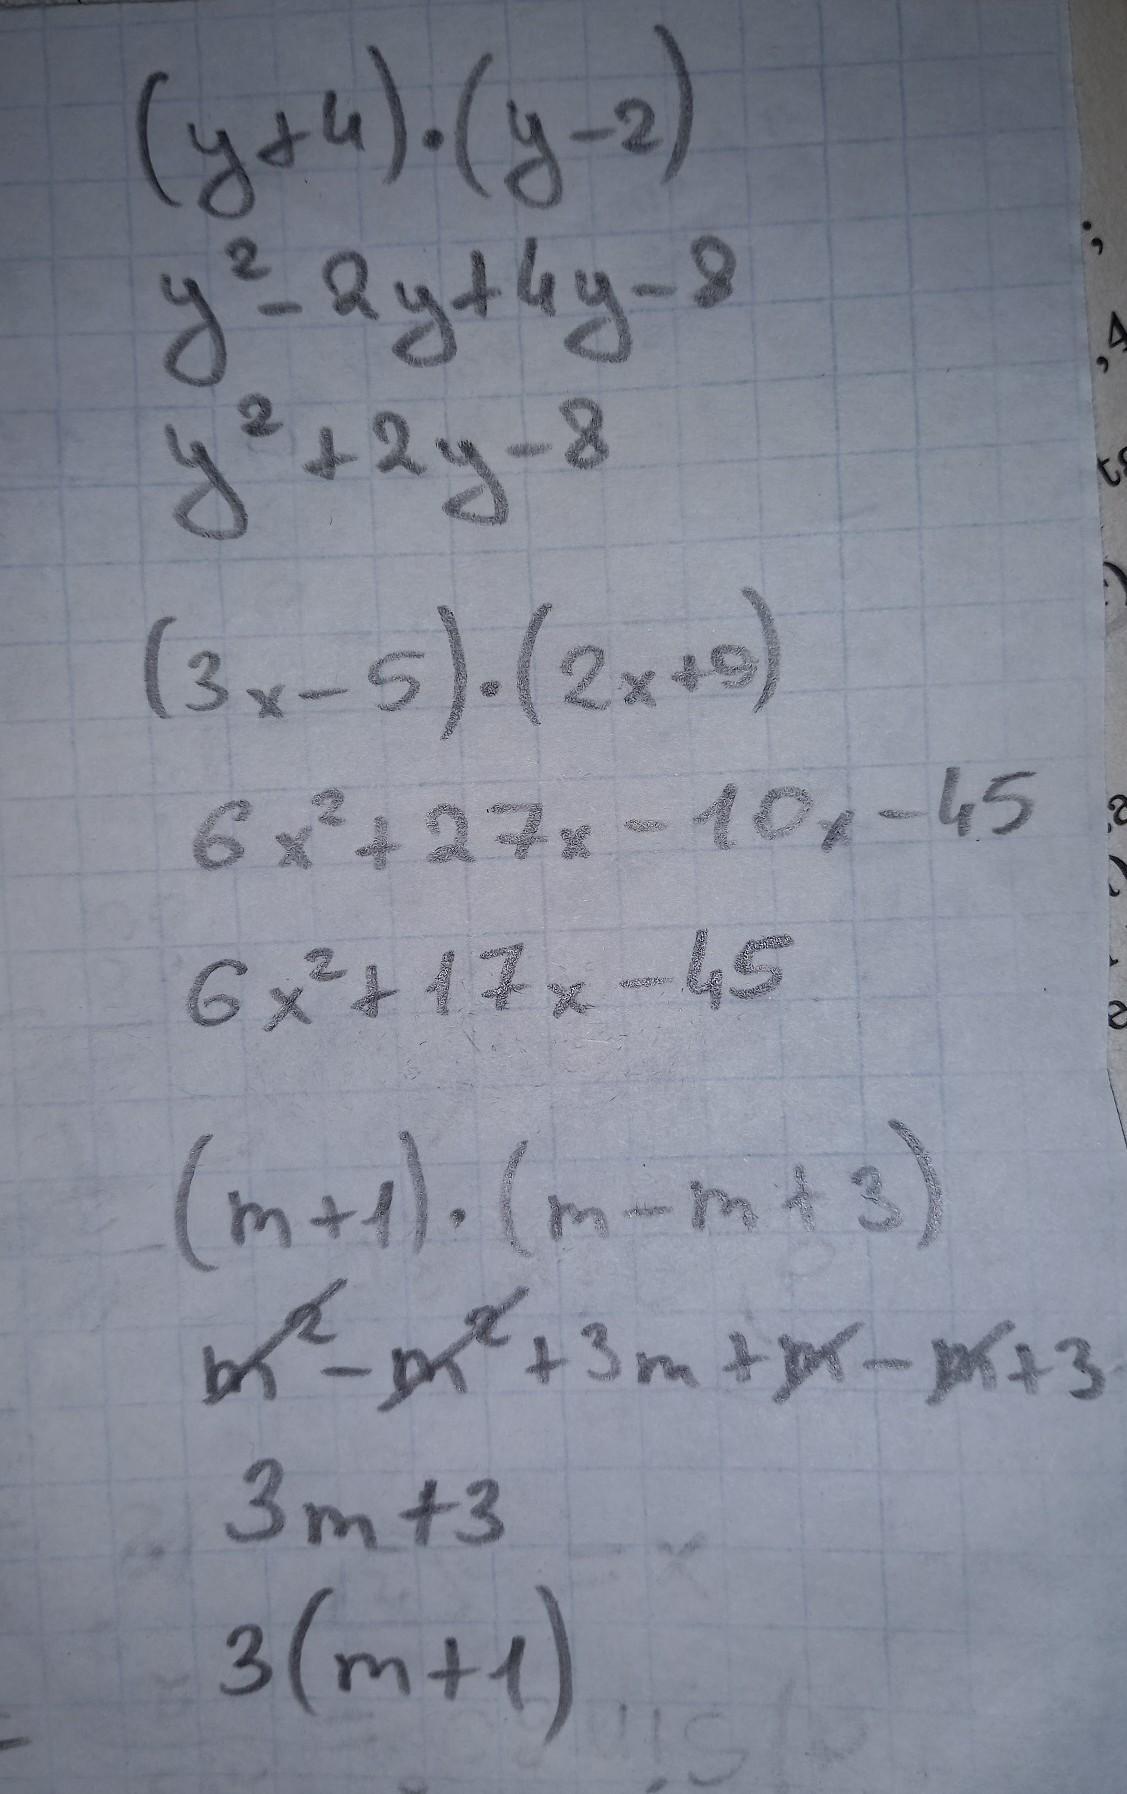 (y+4)·(y-2)
y²-2y+4y-8
y²+2y-8
(3x-5)·(2x+9)
6x²+27x-10x-45
6x²+17x-45
(m+1)·(m-m+3)
m²-m²+3m+m-m+3
3m+3
3(m+1)